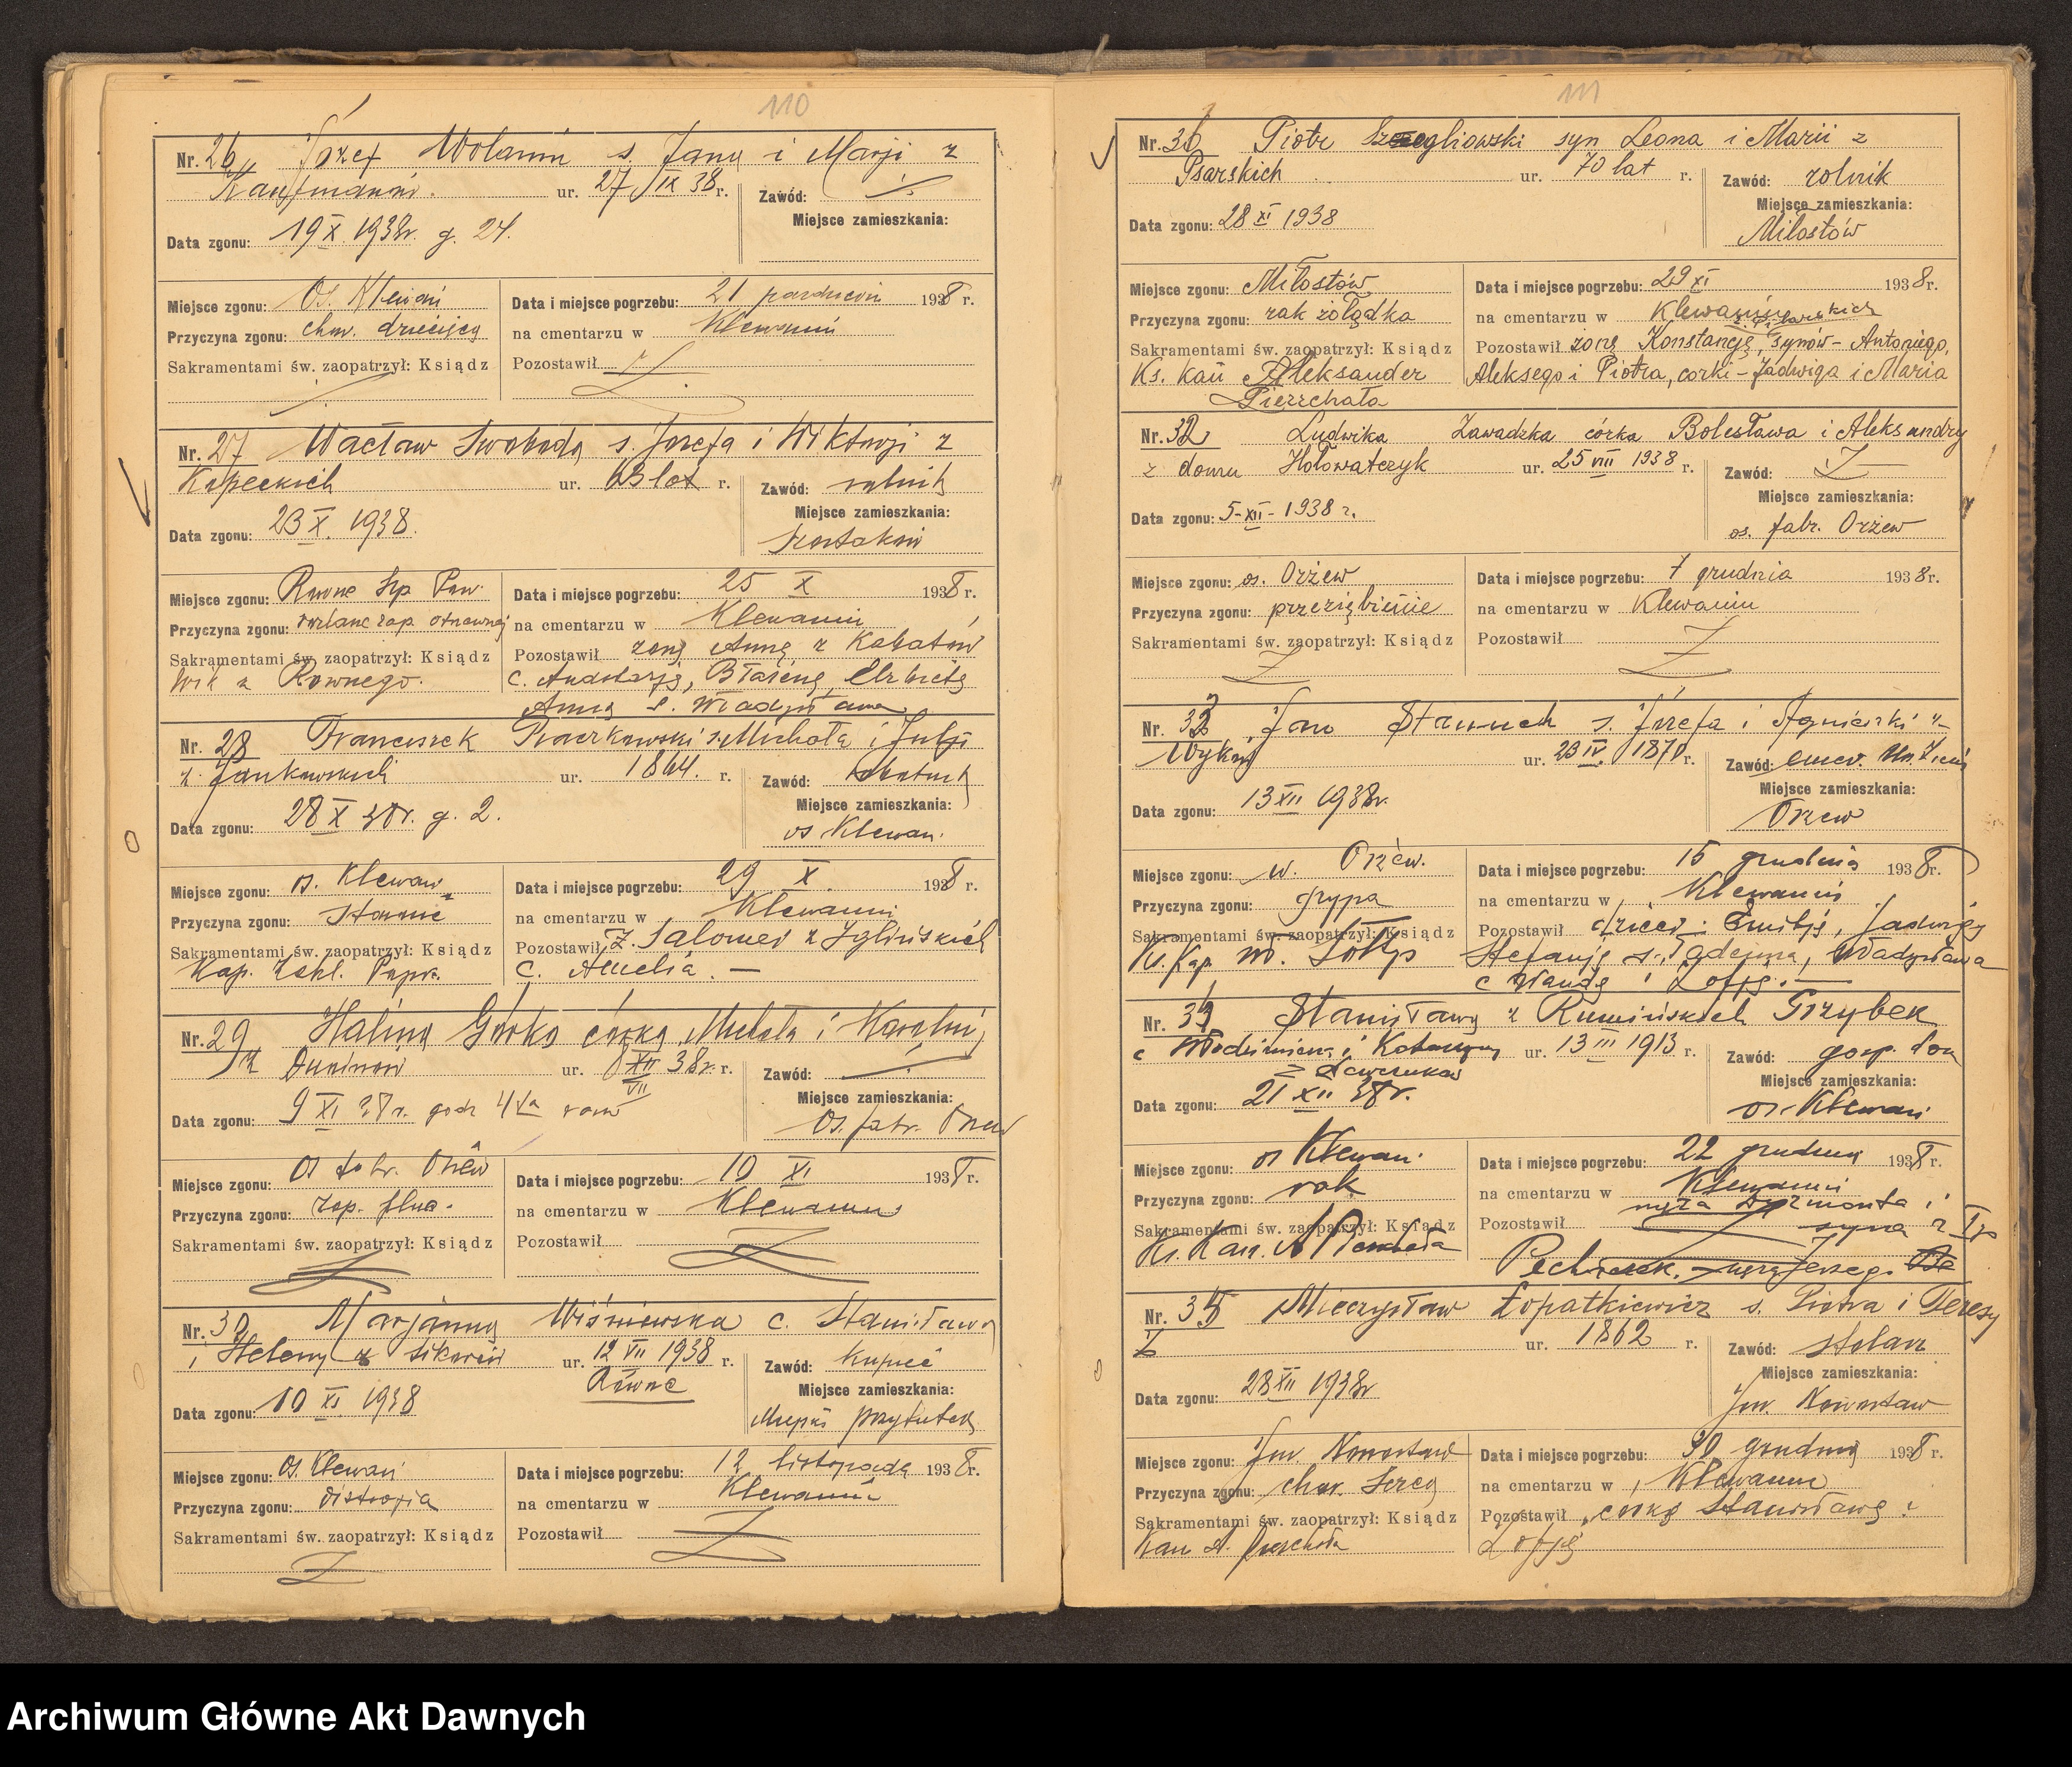 110
Nr. 26 Józef Wolanin s. Jana i Marji z
Kaufmanów. ur. 27 IX 38 r. Zawód:
Miejsce zamieszkania:
Data zgonu: 19 X. 1938r. g. 24.
Miejsce zgonu: Os. Klewań Data i miejsce pogrzebu: 21 1938 r.
Przyczyna zgonu: chor. dziecięca na cmentarzu w Klewaniu
Sakramentami św. zaopatrzył: Ksiądz Pozostawił
Nr. 27 Wacław Swoboda s. Józefa i Wiktorji z
Kopeckich ur. 63 lat r. Zawód: rolnik
Miejsce zamieszkania:
Data zgonu: 23 X. 1938.
Szostaków
Miejsce zgonu: Równe Szp. Pow. Data i miejsce pogrzebu: 25 X 1938 r.
Przyczyna zgonu: zap. otrzewnej na cmentarzu w Klewaniu
Sakramentami św. zaopatrzył: Ksiądz Pozostawił żonę Annę z
z Równego. c. Anastazję, Błażenę, Elżbietę
Annę s. Władysława
Nr. 28 Franciszek s. Michała i Julji
z Jankowskich ur. 1864. r. Zawód:
Miejsce zamieszkania:
Data zgonu: 28 X 38r. g. 2.
os Klewań.
Miejsce zgonu: os. Klewań Data i miejsce pogrzebu: 29 X. 1938 r.
Przyczyna zgonu: na cmentarzu w Klewaniu
Sakramentami św. zaopatrzył: Ksiądz Pozostawił ż. Salomeę z Iglińskich
Kap. c. Amelia. —
Nr. 29 Halina Górko córka Michała i Karoliny
z ur. 8 XII 38r. r. Zawód:
VII
Miejsce zamieszkania:
Data zgonu: 9 XI 38 r. godz 4ta rano
Os. fabr. Orżew
Miejsce zgonu: Os fabr. Orżew Data i miejsce pogrzebu: 10 XI 1938 r.
Przyczyna zgonu: zap. płuc. na cmentarzu w Klewaniu
Sakramentami św. zaopatrzył: Ksiądz Pozostawił
Nr. 30 Marjanna Wiśniewska c. Stanisława
i Heleny z Sikorów ur. 12 VII 1938 r. Zawód: kupiec
Równe
Miejsce zamieszkania:
Data zgonu: 10 XI 1938
Miejsce zgonu: Os. Klewań Data i miejsce pogrzebu: 12 listopada 1938 r.
Przyczyna zgonu: na cmentarzu w Klewaniu
Sakramentami św. zaopatrzył: Ksiądz Pozostawił
111
Nr. 31 Piotr syn Leona i Marii z
Psarskich ur. 70 lat r. Zawód: rolnik
Miejsce zamieszkania:
Data zgonu: 28 XI 1938
Miłostów
Miejsce zgonu: Miłostów Data i miejsce pogrzebu: 29 XI 1938 r.
Przyczyna zgonu: rak żołądka na cmentarzu w Klewaniu
Sakramentami św. zaopatrzył: Ksiądz Pozostawił żonę Konstancję, synów - Antoniego,
Ks. kan Aleksander Aleksego i Piotra, córki - Jadwiga i Maria
Pierzchała
Nr. 32 Ludwika Zawadzka córka Bolesława i Aleksandry
z domu Hołowatczyk ur. 25 VIII 1938 r. Zawód:
Miejsce zamieszkania:
Data zgonu: 5-XII-1938 r.
os. fabr. Orżew
Miejsce zgonu: os. Orżew Data i miejsce pogrzebu: 7 grudnia 1938 r.
Przyczyna zgonu: przeziębienie na cmentarzu w Klewaniu
Sakramentami św. zaopatrzył: Ksiądz Pozostawił
Nr. 33 Jan s. Józefa i Agnieszki z
ur. 23 IV. 1870 r. Zawód:
Miejsce zamieszkania:
Data zgonu: 13 XII 1938r.
Orżew
Miejsce zgonu: w. Orżew. Data i miejsce pogrzebu: 15 grudnia 1938 r.
Przyczyna zgonu: grypa na cmentarzu w Klewaniu
Sakramentami św. zaopatrzył: Ksiądz Pozostawił dzieci: Emilję, Jadwigę
Stefanję s. Tadeusza, Władysława
c Wandę i Zofję. —
Nr. 34 Stanisława z Rumińskich Grzybek
c Włodzimierza i Katarzyny ur. 13 III 1913 r. Zawód: gosp. dom
Miejsce zamieszkania:
Data zgonu: 21 XII 38r.
os. Klewań
Miejsce zgonu: os Klewań. Data i miejsce pogrzebu: 22 grudnia 1938 r.
Przyczyna zgonu: rak na cmentarzu w Klewaniu
Sakramentami św. zaopatrzył: Ksiądz Pozostawił męża Zygmonta i
Ks. Kan. A Pierzchała syna z
Nr. 35 Mieczysław Łopatkiewicz s. Piotra i Teresy
ur. 1862 r. Zawód: stolarz
Miejsce zamieszkania:
Data zgonu: 28 XII 1938r
Jm. Nowostaw
Miejsce zgonu: Jm. Nowostaw Data i miejsce pogrzebu: 30 grudnia 1938 r.
Przyczyna zgonu: chor. serca na cmentarzu w Klewaniu
Sakramentami św. zaopatrzył: Ksiądz Pozostawił córkę Stanisławę i
Kan A. Pierzchała Zofję
Archiwum Główne Akt Dawnych